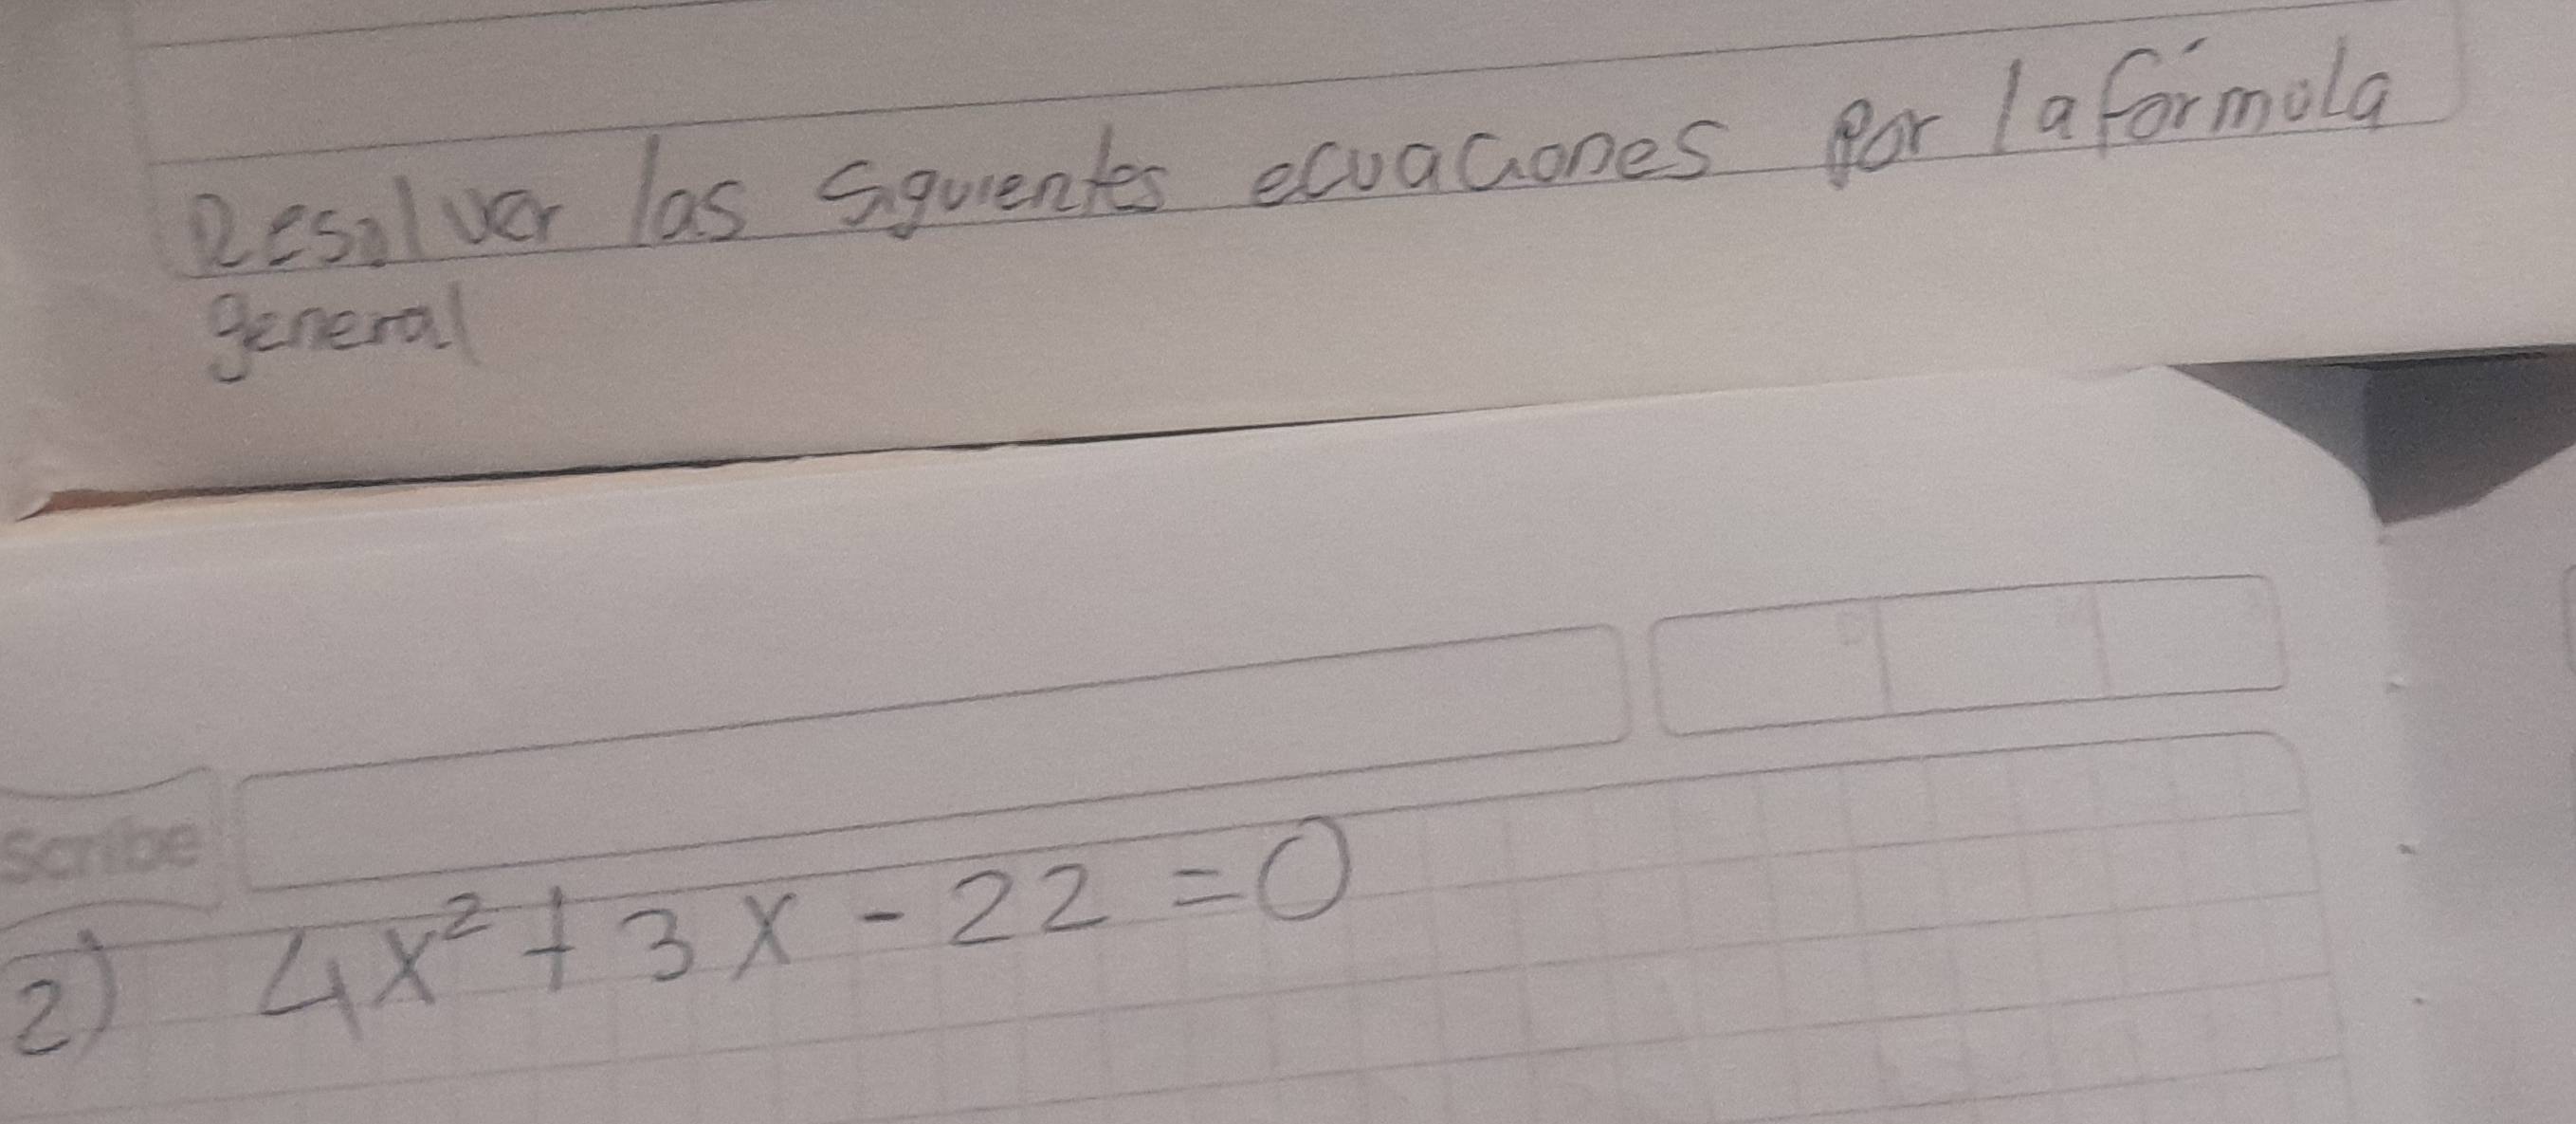 Resolver las siguientes ecuaciones por la fórmula
general
Scribe
2) 4x² + 3x - 22 = 0